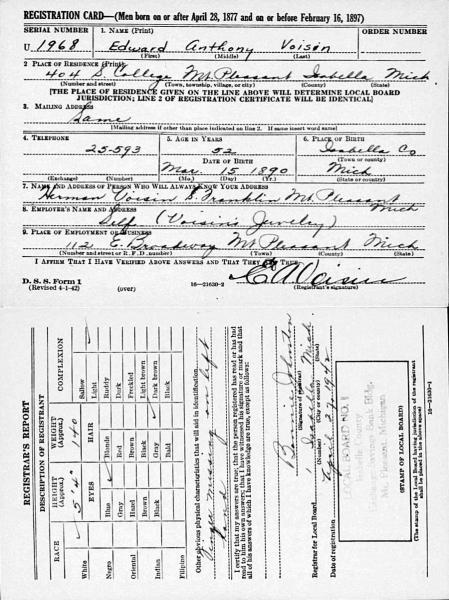 REGISTRATION CARD—(Men born on or after April 28, 1877 and on or before February 16, 1897)
SERIAL NUMBER 1. NAME (Print) ORDER NUMBER
U 1968 Edward Anthony Voisin
(First) (Middle) (Last)
2. PLACE OF RESIDENCE (Print)
404 S. College Mt. Pleasant Isabella Mich
(Number and street) (Town, township, village, or city) (County) (State)
[THE PLACE OF RESIDENCE GIVEN ON THE LINE ABOVE WILL DETERMINE LOCAL BOARD
JURISDICTION; LINE 2 OF REGISTRATION CERTIFICATE WILL BE IDENTICAL]
3. MAILING ADDRESS
Same
[Mailing address if other than place indicated on line 2. If same insert word same]
4. TELEPHONE 5. AGE IN YEARS 6. PLACE OF BIRTH
25-593 52 Isabella Co
DATE OF BIRTH (Town or county)
Mar. 15 1890 Mich
(Exchange) (Number) (Mo.) (Day) (Yr.) (State or country)
7. NAME AND ADDRESS OF PERSON WHO WILL ALWAYS KNOW YOUR ADDRESS
Herman Voisin S. Franklin Mt. Pleasant Mich
8. EMPLOYER'S NAME AND ADDRESS
Self (Voisin's Jewelry)
9. PLACE OF EMPLOYMENT OR BUSINESS
112 E. Broadway Mt Pleasant Mich
(Number and street or R. F. D. number) (Town) (County) (State)
I AFFIRM THAT I HAVE VERIFIED ABOVE ANSWERS AND THAT THEY ARE TRUE.
E A Voisin
D. S. S. Form 1
(Revised 4-1-42) (over) 16—21630-2 (Registrant's signature)
REGISTRAR'S REPORT
DESCRIPTION OF REGISTRANT
RACE HEIGHT (Approx.) WEIGHT (Approx.) COMPLEXION
5' 4" 140 Sallow
White EYES HAIR Light
Negro Blue Blonde Ruddy
Gray Red Dark
Oriental Hazel Brown Freckled
Brown Black Light brown
Indian Black Gray Dark brown
Filipino Bald Black
Other obvious physical characteristics that will aid in identification
Finger missing on left
hand
I certify that my answers are true; that the person registered has read or has had
read to him his own answers; that I have witnessed his signature or mark and that
all of his answers of which I have knowledge are true, except as follows:
Bonnie Johnston
(Signature of registrar)
Registrar for Local Board Isabella Mich
(Number) (City or county) (State)
Date of registration April 27 1942
BOARD NO. 1
Isabella County
Bank Bldg.
Mt. Pleasant, Michigan
(STAMP OF LOCAL BOARD)
(The stamp of the Local Board having jurisdiction of the registrant
shall be placed in the above space)
16—21630-1